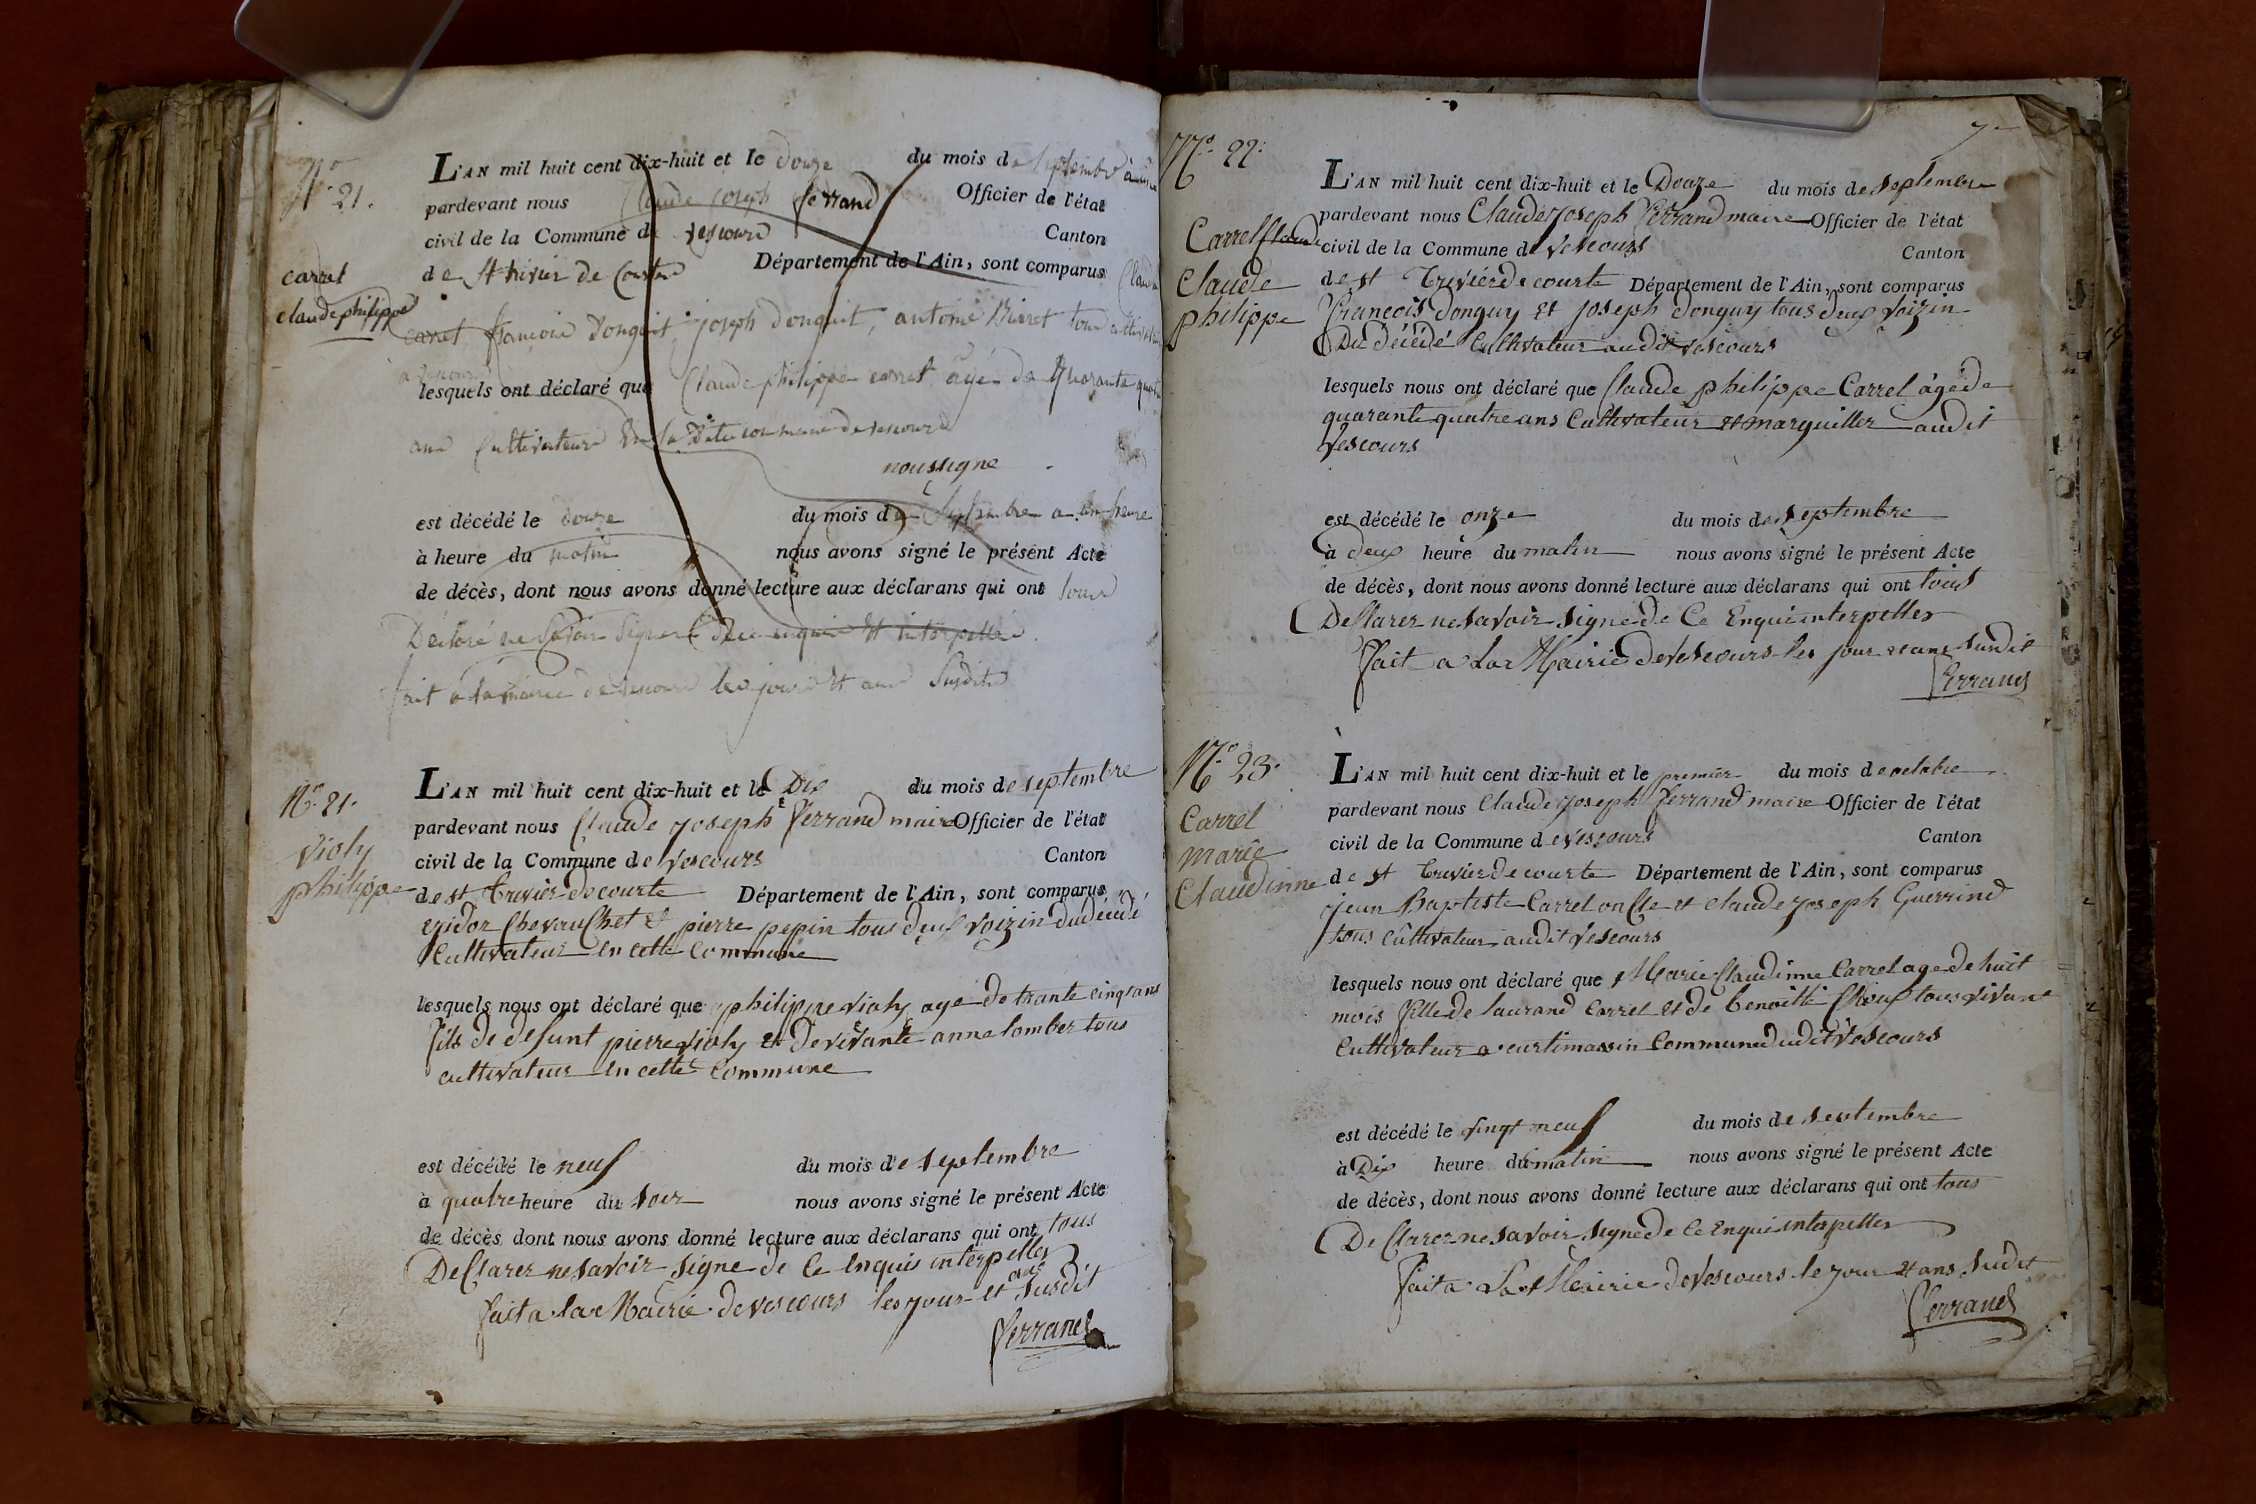 N° 21.
carret
claude philippe
L'AN mil huit cent dix-huit et le douze du mois de septembre à
pardevant nous Claude joseph ferrand Officier de l'état
civil de la Commune de vescours Canton
de St trivier de Courte Département de l'Ain, sont comparus Claude
carret françois donguit, joseph donguit, antoine
lesquels ont déclaré que Claude philippe carret âgé de Quarante quatre
ans Cultivateur en la ditte commune de vescours
noussigne
est décédé le douze du mois de Septembre a une heure
à heure du matin nous avons signé le présent Acte
de décès, dont nous avons donné lecture aux déclarans qui ont tous
Déclaré ne savoir signer de ce enquis et interpellé
fait à la mairie de vescours les jour et an susdits
N° 21.
violy
philippe
L'AN mil huit cent dix-huit et le Dix du mois de septembre
pardevant nous Claude joseph ferrand maire Officier de l'état
civil de la Commune de vescours Canton
de st trivier de courte Département de l'Ain, sont comparus
ezidor Chevauchet et pierre pepin tous deux voizin du décédé
Cultivateur en cette Commune
lesquels nous ont déclaré que philippe violy age de trante cinq ans
fils de defunt pierre violy et de vivante anne lomber tous
cultivateur en cette Commune
est décédé le neuf du mois de septembre
à quatre heure du soir nous avons signé le présent Acte
de décès dont nous avons donné lecture aux déclarans qui ont tous
DeClarer ne savoir signe de Ce enquis interpeller
fait a la Mairie de vescours les jour et ans susdit
ferrand
N° 22.
Carrel
Claude
philippe
L'AN mil huit cent dix-huit et le Douze du mois de septembre
pardevant nous Claude joseph ferrand maire Officier de l'état
civil de la Commune de vescours Canton
de st trivier de courte Département de l'Ain, sont comparus
françois donguy et joseph donguy tous deux voizin
Du décédé Cultivateur audit vescours
lesquels nous ont déclaré que Claude philippe Carrel âgé de
quarante quatre ans Cultivateur et marguiller audit
vescours
est décédé le onze du mois de septembre
à deux heure du matin nous avons signé le présent Acte
de décès, dont nous avons donné lecture aux déclarans qui ont tous
DeClarer ne savoir signe de Ce Enqui interpeller
fait a La Mairie de vescours les jour et ans susdit
ferrand
N° 23.
Carrel
marie
Claudinne
L'AN mil huit cent dix-huit et le premier du mois de octobre
pardevant nous Claude joseph ferrand maire Officier de l'état
civil de la Commune de vescours Canton
de st trivier de courte Département de l'Ain, sont comparus
jean Baptiste Carrel oncle et claude joseph Guerrind
tous cultivateur audit vescours
lesquels nous ont déclaré que Marie Claudinne Carrel age de huit
mois fille de laurand Carrel et de benoitte tous vivant
Cultivateur a curtimassin Commune dudit vescours
est décédé le vingt neuf du mois de septembre
à Dix heure du matin nous avons signé le présent Acte
de décès, dont nous avons donné lecture aux déclarans qui ont tous
DeClarer ne savoir signe de Ce Enqui interpeller
fait a La Mairie de vescours le jour et ans sudit
ferrand